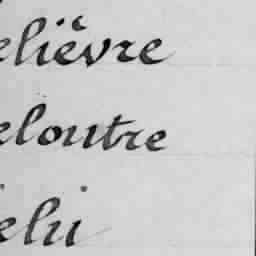 elièvre
eloutre
elu